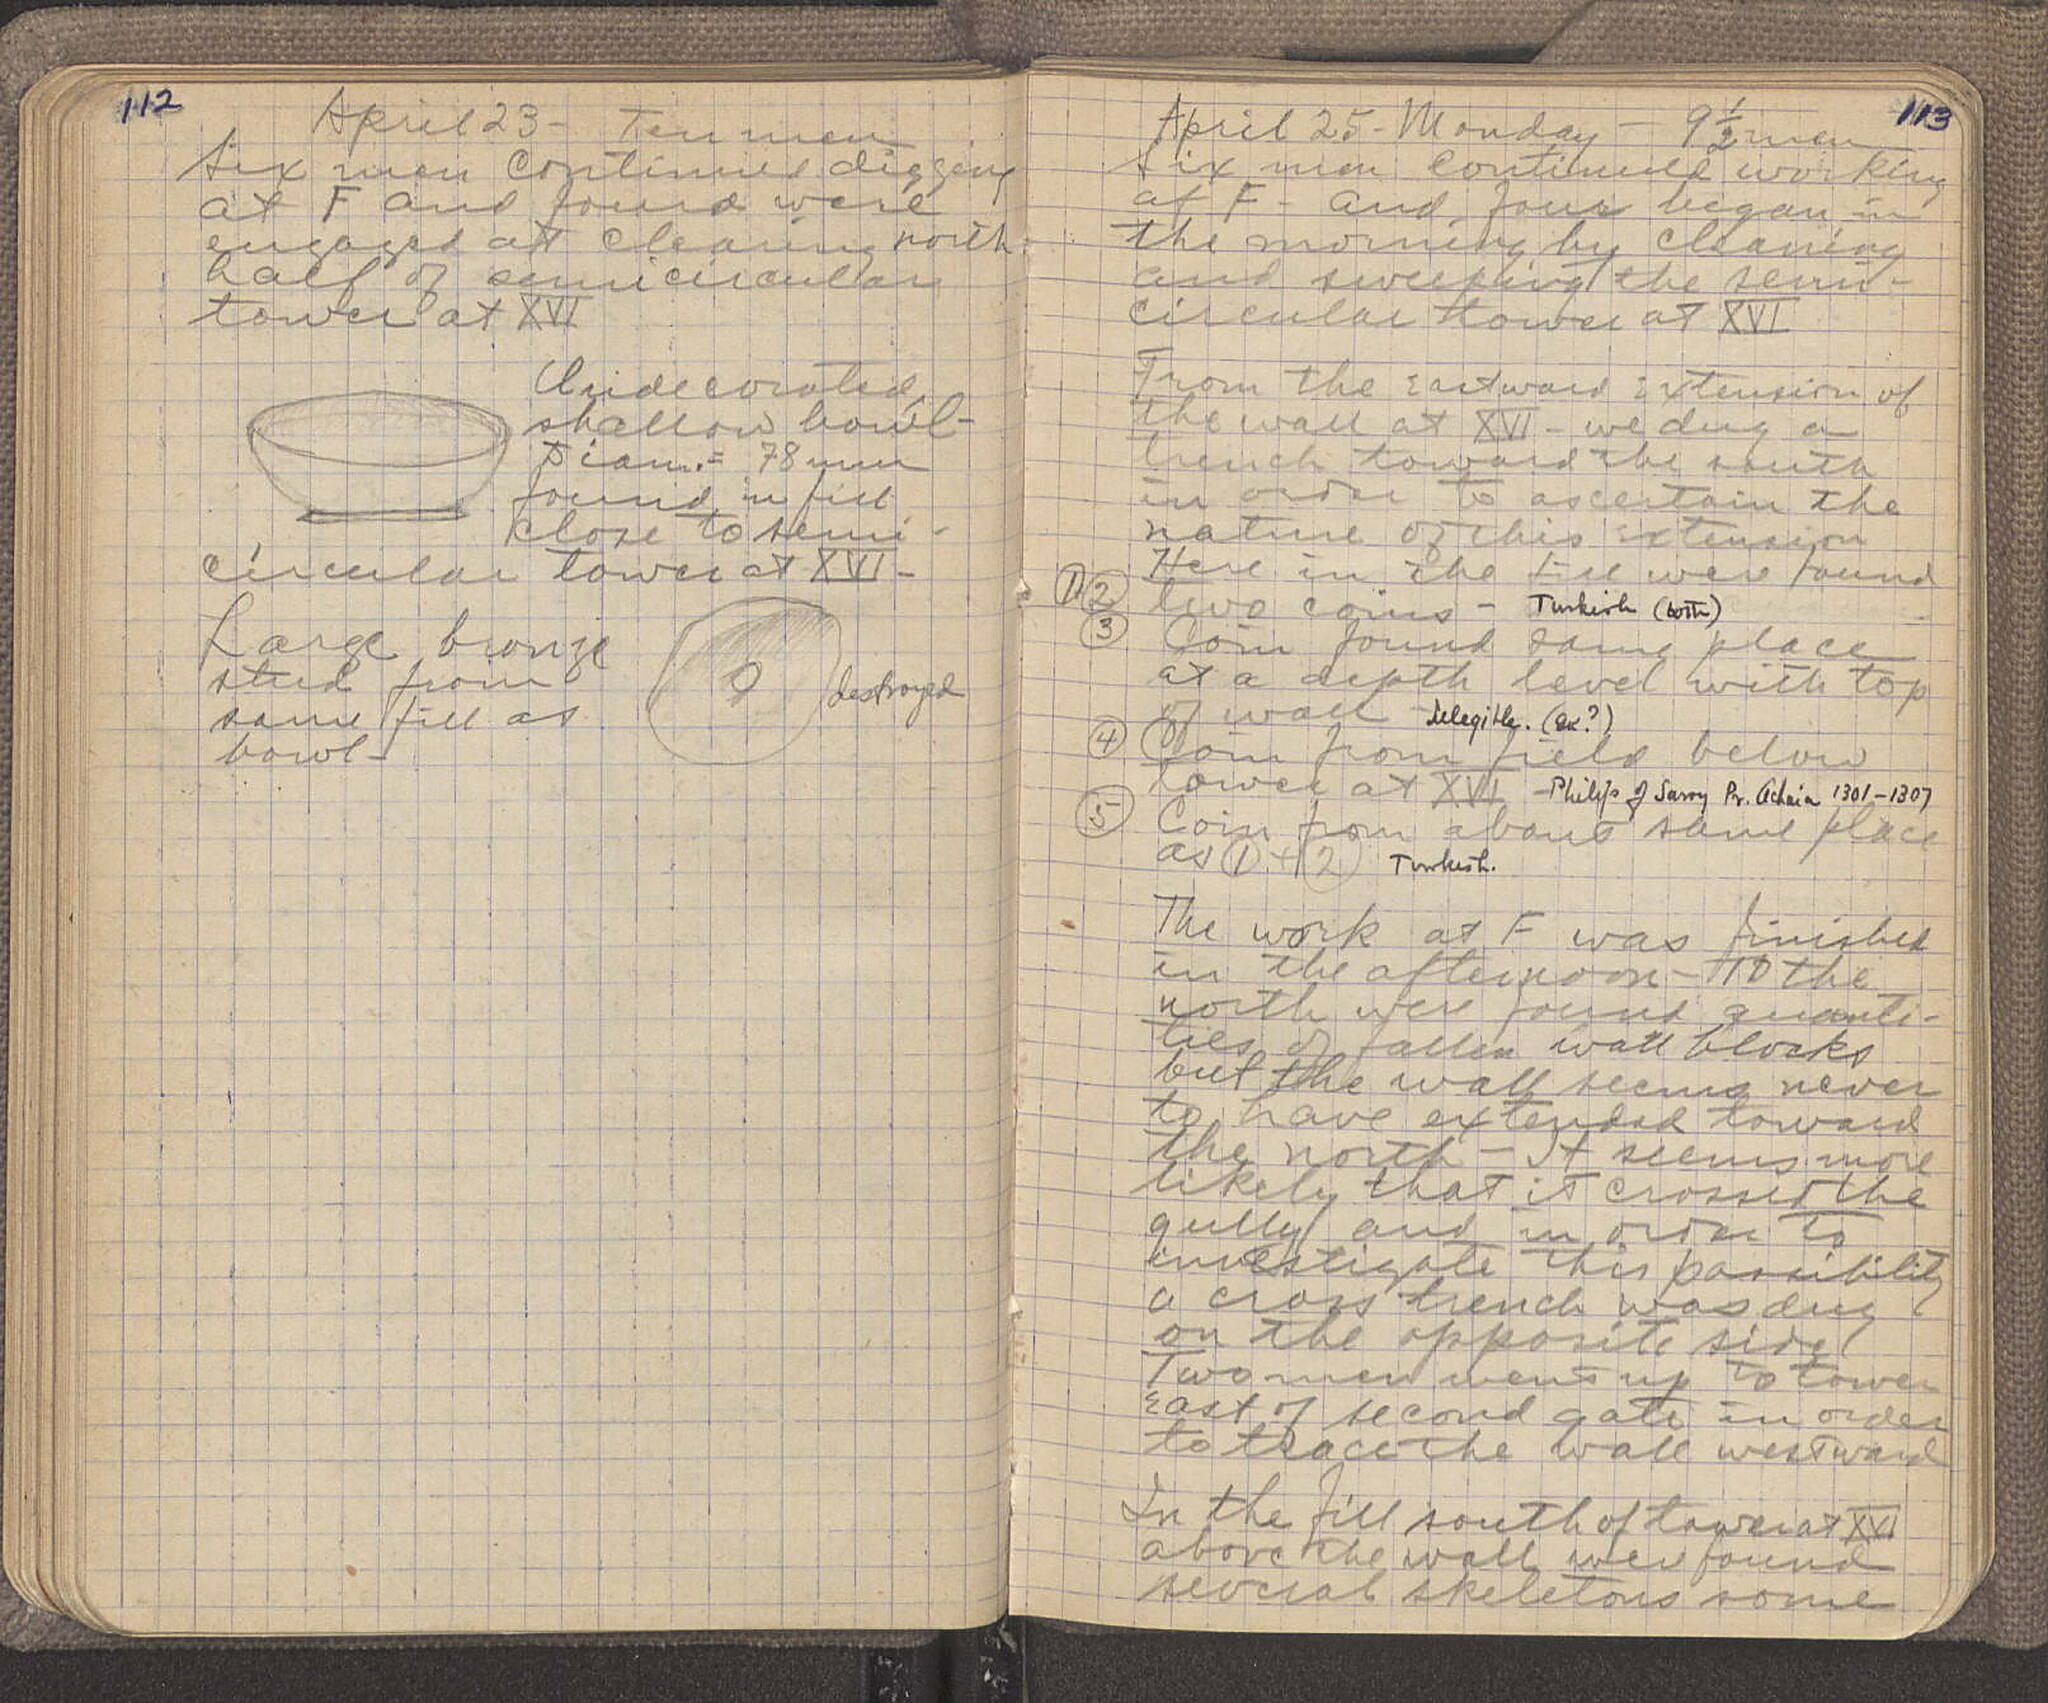 112
April 23 - Ten men
Six men continued digging
at F and found were
engaged at clearing north
half of semicircular
tower at XVI
Undecorated
shallow bowl -
Diam. = 78 mm
found in fill
close to semi-
circular tower at XVI -
Large bronze
stud from
same fill as
bowl -
destroyed
113
April 25 - Monday - 9 1/2 men
Six men continued working
at F - and four began in
the morning by cleaning
and sweeping the semi-
circular tower at XVI
From the eastward extension of
the wall at XVI - we dug a
trench toward the south
in order to ascertain the
nature of this extension
Here in the fill were found
① ② two coins - Turkish (both)
③ Coin found same place
at a depth level with top
of wall - illegible. (ae?)
④ Coin from field below
tower at XVI - Philip of Savoy Pr. Achaia 1301-1307
⑤ Coin from about same place
as ① + ② Turkish.
The work at F was finished
in the afternoon - To the
north were found quanti-
ties of fallen wall blocks
but the wall seems never
to have extended toward
the north - It seems more
likely that it crossed the
gully and in order to
investigate this possibility
a cross trench was dug
on the opposite side
Two men went up to tower
east of second gate in order
to trace the wall westward
In the fill south of tower at XVI
above the wall were found
several skeletons some